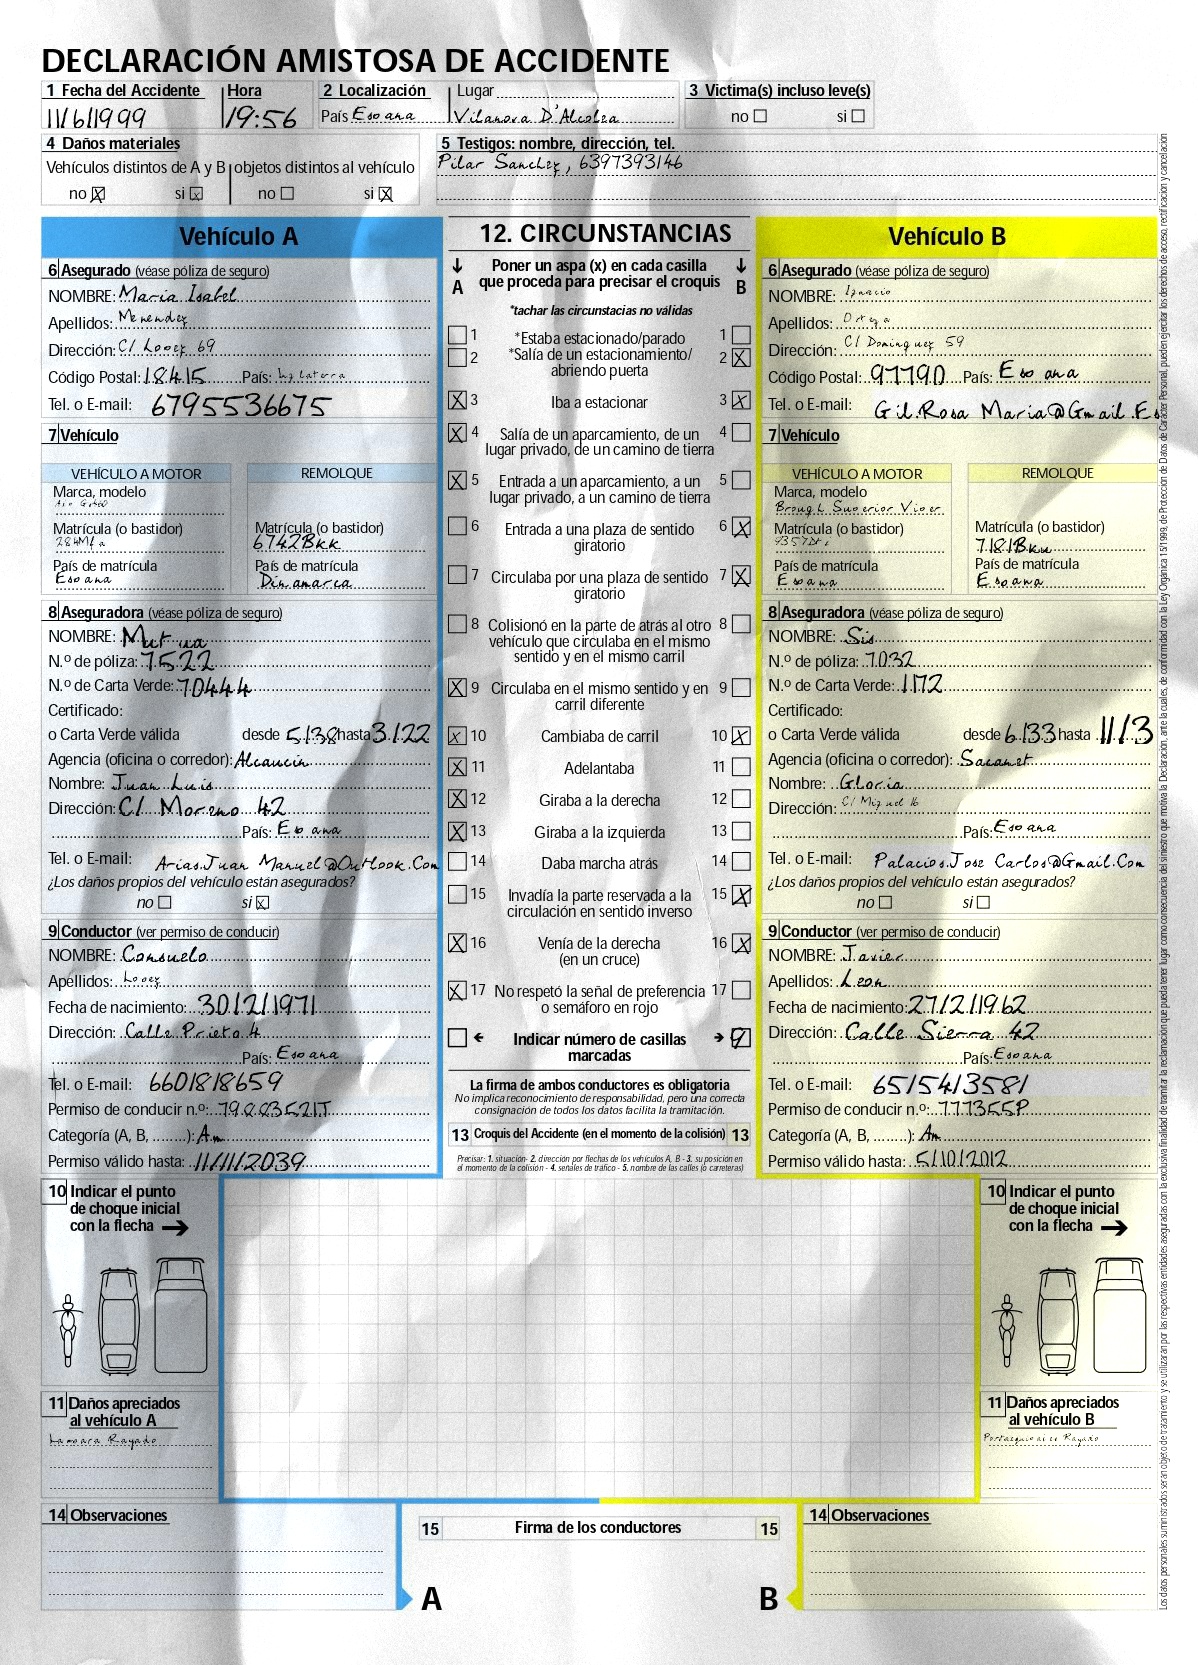 DECLARACIÓN AMISTOSA DE ACCIDENTE
1 Fecha del Accidente Hora 2 Localización Lugar 3 Victima(s) incluso leve(s)
11/6/1999 19:56 País Espana Vilanova D'Alcolea no si
4 Daños materiales 5 Testigos: nombre, dirección, tel.
Vehículos distintos de A y B objetos distintos al vehículo Pilar Sanchez, 6397393146
no X si X no si X
Vehículo A
6 Asegurado (véase póliza de seguro)
NOMBRE: Maria Isabel
Apellidos: Menendez
Dirección: C/ Lopez 69
Código Postal: 18415 País: Inglaterra
Tel. o E-mail: 6795536675
7 Vehículo
VEHÍCULO A MOTOR REMOLQUE
Marca, modelo
Matrícula (o bastidor) Matrícula (o bastidor)
6742Bkk
País de matrícula País de matrícula
Espana Dinamarca
8 Aseguradora (véase póliza de seguro)
NOMBRE: Mutua
N.º de póliza: 7522
N.º de Carta Verde: 70444
Certificado:
o Carta Verde válida desde 5/3/38 hasta 3/122
Agencia (oficina o corredor): Alcaucin
Nombre: Juan Luis
Dirección: C/ Moreno 42
País: Espana
Tel. o E-mail: Arias.Juan Manuel@Outlook.Com
¿Los daños propios del vehículo están asegurados?
no si X
9 Conductor (ver permiso de conducir)
NOMBRE: Consuelo
Apellidos: Lopez
Fecha de nacimiento: 30/2/1971
Dirección: Calle Prieto 4
País: Espana
Tel. o E-mail: 6601818659
Permiso de conducir n.º: 79883521T
Categoría (A, B, ........): Am
Permiso válido hasta: 11/11/2039
12. CIRCUNSTANCIAS
Poner un aspa (x) en cada casilla
A que proceda para precisar el croquis B
*tachar las circunstacias no válidas
1 *Estaba estacionado/parado 1
2 *Salía de un estacionamiento/ 2 X
abriendo puerta
X 3 Iba a estacionar 3 X
X 4 Salía de un aparcamiento, de un 4
lugar privado, de un camino de tierra
X 5 Entrada a un aparcamiento, a un 5
lugar privado, a un camino de tierra
6 Entrada a una plaza de sentido 6 X
giratorio
7 Circulaba por una plaza de sentido 7 X
giratorio
8 Colisionó en la parte de atrás al otro 8
vehículo que circulaba en el mismo
sentido y en el mismo carril
X 9 Circulaba en el mismo sentido y en 9
carril diferente
X 10 Cambiaba de carril 10 X
X 11 Adelantaba 11
X 12 Giraba a la derecha 12
X 13 Giraba a la izquierda 13
14 Daba marcha atrás 14
15 Invadía la parte reservada a la 15 X
circulación en sentido inverso
X 16 Venía de la derecha 16 X
(en un cruce)
X 17 No respetó la señal de preferencia 17
o semáforo en rojo
Indicar número de casillas 9
marcadas
La firma de ambos conductores es obligatoria
No implica reconocimiento de responsabilidad, pero una correcta
consignación de todos los datos facilita la tramitación.
13 Croquis del Accidente (en el momento de la colisión) 13
Precisar: 1. situación- 2. dirección por flechas de los vehículos A, B - 3. su posición en
el momento de la colisión - 4. señales de tráfico - 5. nombre de las calles (o carreteras)
Vehículo B
6 Asegurado (véase póliza de seguro)
NOMBRE: Ignacio
Apellidos: Ortega
Dirección: C/ Dominguez 59
Código Postal: 97790 País: Espana
Tel. o E-mail: Gil.Rosa Maria@Gmail.Es
7 Vehículo
VEHÍCULO A MOTOR REMOLQUE
Marca, modelo
Brough Superior Viper
Matrícula (o bastidor) Matrícula (o bastidor)
País de matrícula País de matrícula
Espana Espana
8 Aseguradora (véase póliza de seguro)
NOMBRE: Sis
N.º de póliza: 7032
N.º de Carta Verde: 1172
Certificado:
o Carta Verde válida desde 6/33 hasta 11/3
Agencia (oficina o corredor): Sacanet
Nombre: Gloria
Dirección: C/ Miguel 16
País: Espana
Tel. o E-mail: Palacios.Jose Carlos@Gmail.Com
¿Los daños propios del vehículo están asegurados?
no si
9 Conductor (ver permiso de conducir)
NOMBRE: Javier
Apellidos: Leon
Fecha de nacimiento: 27/2/1962
Dirección: Calle Sierra 42
País: Espana
Tel. o E-mail: 6515413581
Permiso de conducir n.º: 777355P
Categoría (A, B, ........): Am
Permiso válido hasta: 5/10/2012
10 Indicar el punto
de choque inicial
con la flecha
11 Daños apreciados
al vehículo A
Lampara Rayado
10 Indicar el punto
de choque inicial
con la flecha
11 Daños apreciados
al vehículo B
Portaequipajes Rayado
14 Observaciones
15 Firma de los conductores 15
14 Observaciones
A B
Los datos personales suministrados seran objeto de tratamiento y se utilizaran por las respectivas entidades aseguradas con la exclusiva finalidad de tramitar la reclamación que pueda tener lugar como consecuencia del siniestro que motiva la Declaración, ante la cuales, de conformidad con la Ley Orgánica 15/1999, de Protección de Datos de Carácter Personal, pueden ejercitar los derechos de acceso, rectificación y cancelación